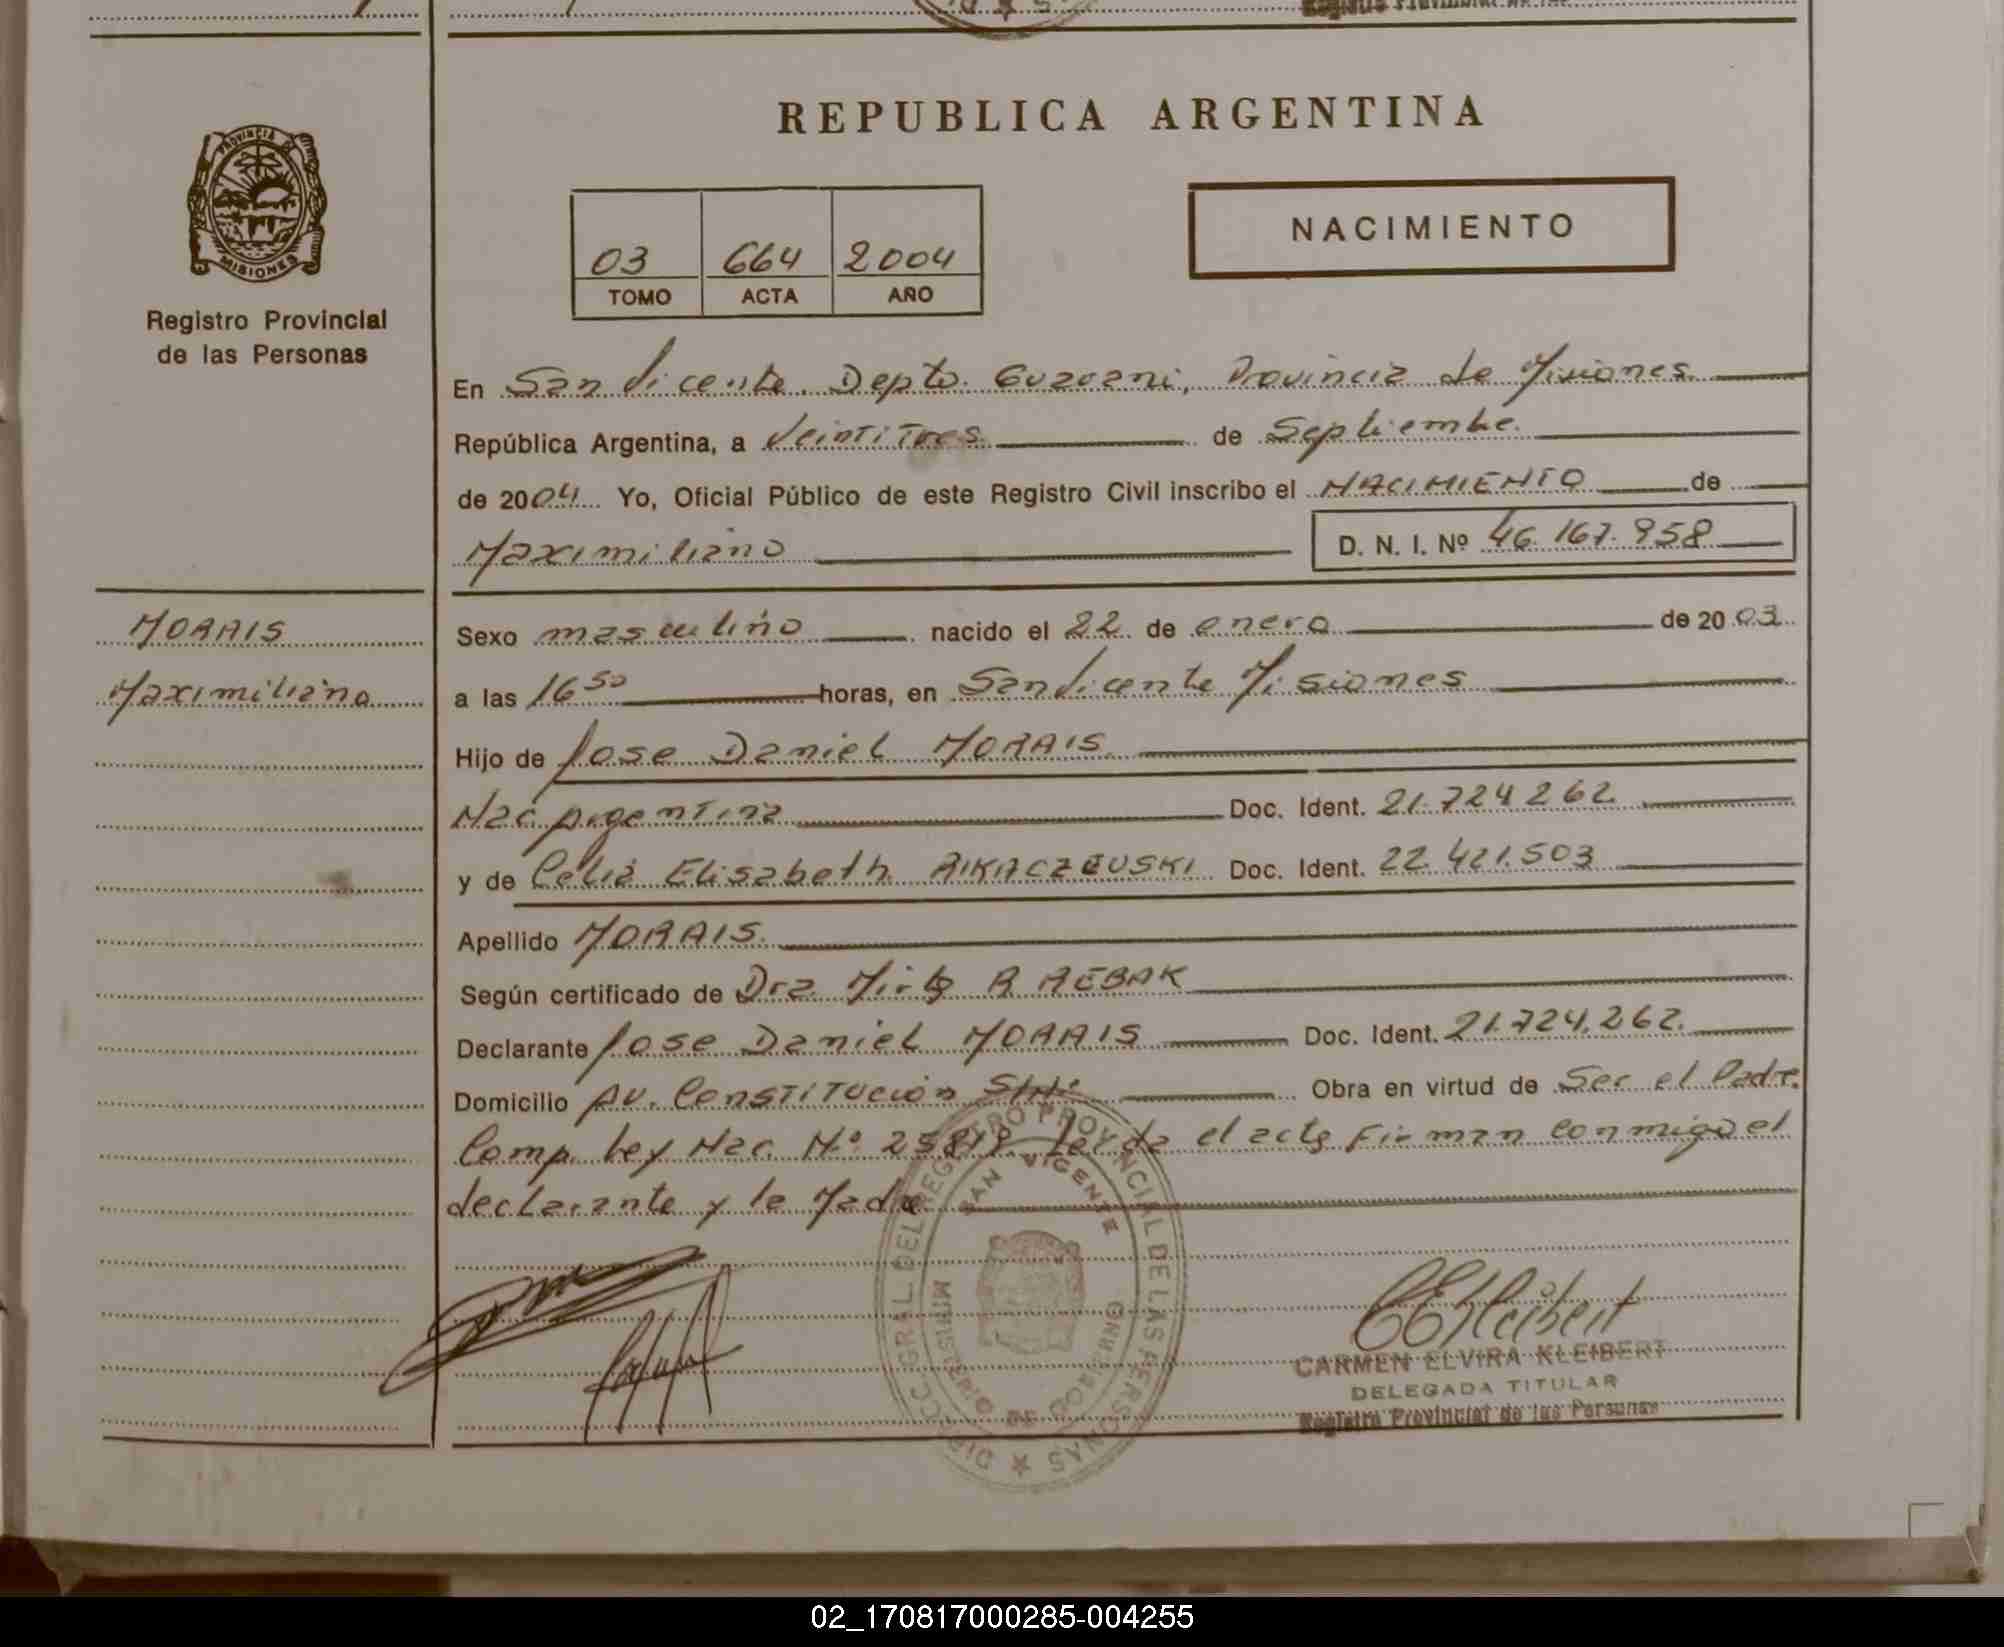 REPUBLICA ARGENTINA
PROVINCIA DE
MISIONES
Registro Provincial
de las Personas
NACIMIENTO
03 664 2004
TOMO ACTA AÑO
En San Vicente. Depto. Guarani, Provincia de Misiones
República Argentina, a Veintitres de Septiembre
de 2004 Yo, Oficial Público de este Registro Civil inscribo el NACIMIENTO de
Maximiliano D. N. I. Nº 46.167.958
MORAIS
Maximiliano
Sexo masculino nacido el 22 de enero de 2003
a las 16 50 horas, en San Vicente Misiones
Hijo de Jose Daniel MORAIS
Nac Argentina Doc. Ident. 21.724.262
y de Celia Elisabeth RIKACZEUSKI Doc. Ident. 22.421.503
Apellido MORAIS
Según certificado de Dra. Mirta R REBAK
Declarante Jose Daniel MORAIS Doc. Ident. 21.724.262
Domicilio Av. Constitución S/Nº Obra en virtud de Ser el Padre.
Comp. Ley Nac. Nº 25819. Leida el acta Firman Conmigo el
declarante y la Madre
DIRECC. GRAL. DEL REGISTRO PROVINCIAL DE LAS PERSONAS
SAN VICENTE
MINISTERIO DE GOBIERNO
CARMEN ELVIRA KLEIBERT
DELEGADA TITULAR
Registro Provincial de las Personas
02_170817000285-004255